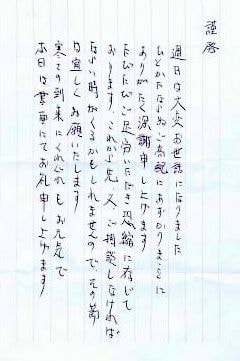 謹啓
過日は大変お世話になりました
ひとかたならぬご高配にあずかりまことに
ありがたく深謝申し上げます
たびたびご足労いただき恐縮に存じて
おります これから先 又 ご相談しなければ
ならない時がくるかもしれませんので、その節
は宜しくお願いいたします
寒さの到来にくれぐれもお元気で
本日は書中にてお礼申し上げます